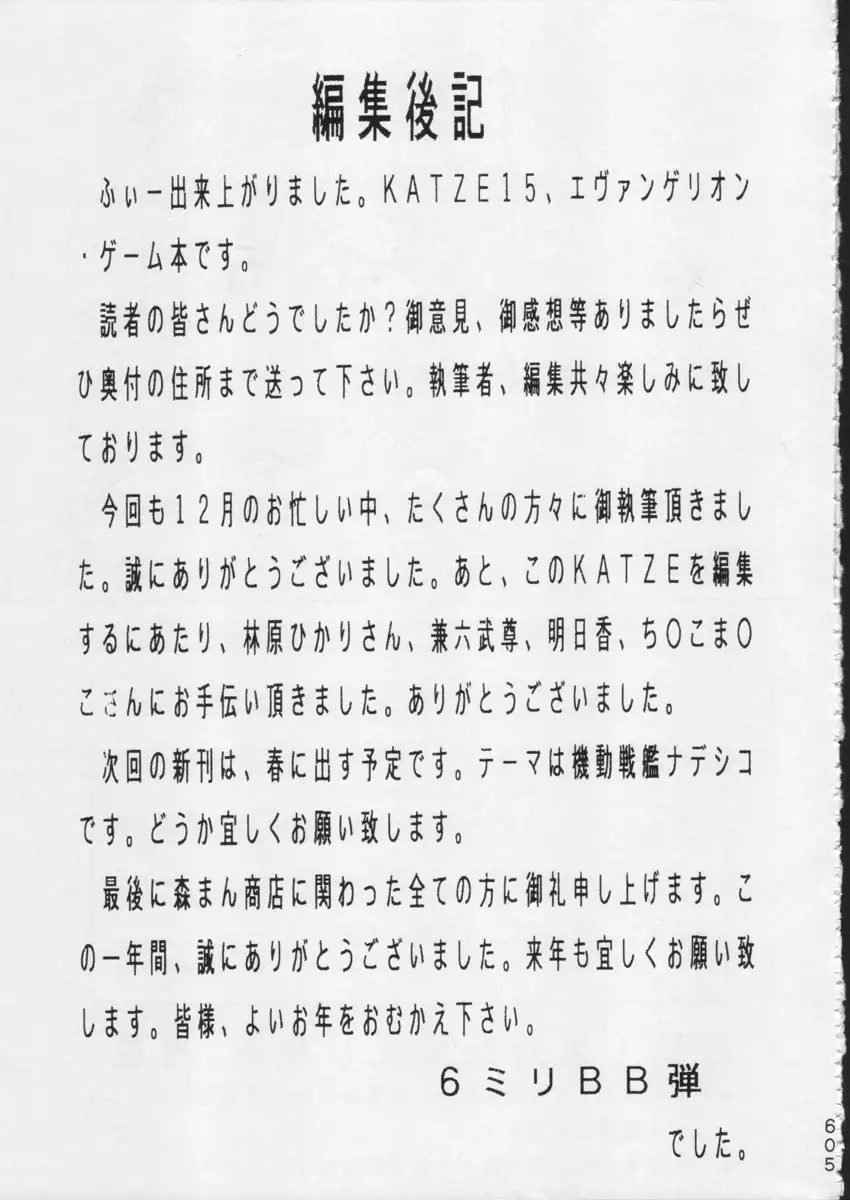 編集後記
ふぃー出来上がりました。KATZE15、エヴァンゲリオン
・ゲーム本です。
読者の皆さんどうでしたか?御意見、御感想等ありましたらぜ
ひ奥付の住所まで送って下さい。執筆者、編集共々楽しみに致し
ております。
今回も12月のお忙しい中、たくさんの方々に御執筆頂きまし
た。誠にありがとうございました。あと、このKATZEを編集
するにあたり、林原ひかりさん、兼六武尊、明日香、ち〇こま〇
こさんにお手伝い頂きました。ありがとうございました。
次回の新刊は、春に出す予定です。テーマは機動戦艦ナデシコ
です。どうか宜しくお願い致します。
最後に森まん商店に関わった全ての方に御礼申し上げます。こ
の一年間、誠にありがとうございました。来年も宜しくお願い致
します。皆様、よいお年をおむかえ下さい。
6ミリBB弾
でした。
605